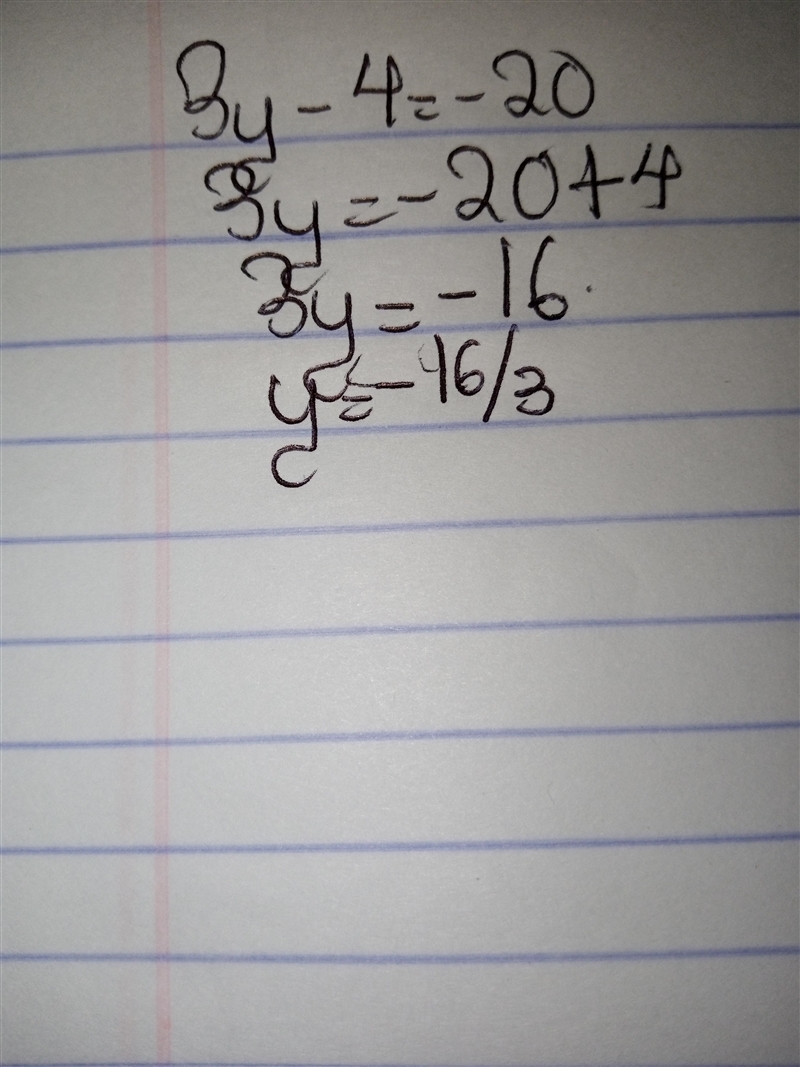 3y - 4 = -20
3y = -20 + 4
3y = -16
y = -16/3